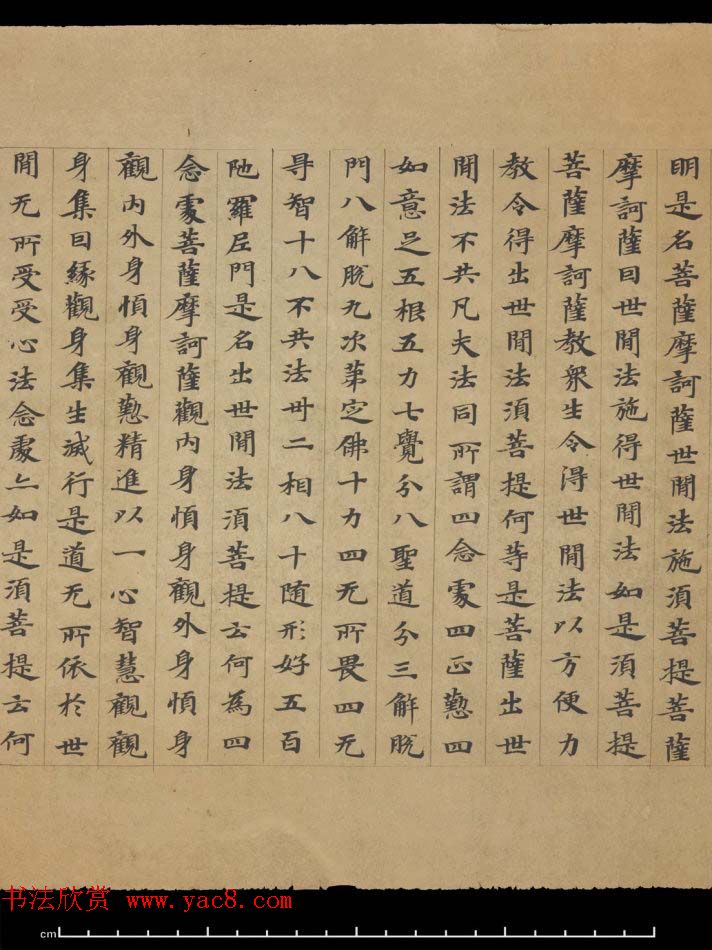 明是名菩薩摩訶薩世閒法施須菩提菩薩
摩訶薩囙世閒法施得世閒法如是須菩提
菩薩摩訶薩教衆生令得世閒法以方便力
教令得出世閒法須菩提何等是菩薩出世
閒法不共凡夫法同所謂四念處四正懃四
如意足五根五力七覺分八聖道分三解脫
門八解脫九次第定佛十力四无所畏四无
㝵智十八不共法卅二相八十随形好五百
陁羅尼門是名出世閒法須菩提云何為四
念處菩薩摩訶薩觀内身循身觀外身循身
觀内外身循身觀懃精進以一心智慧觀觀
身集囙緣觀身集生滅行是道无所依於世
閒无所受受心法念處亦如是須菩提云何
书法欣赏 www.yac8.com
cm